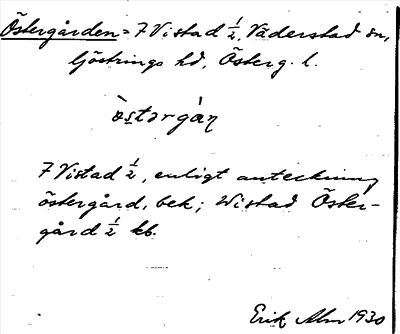 Östergården = 7 Vistad 1/2, Väderstad sn,
Göstrings hd, Österg. l.
ò̀stərgán
7 Vistad 1/2, enligt anteckning
östergård, bek; Wistad Öster-
gård 1/2 kb.
Erik Alm 1930